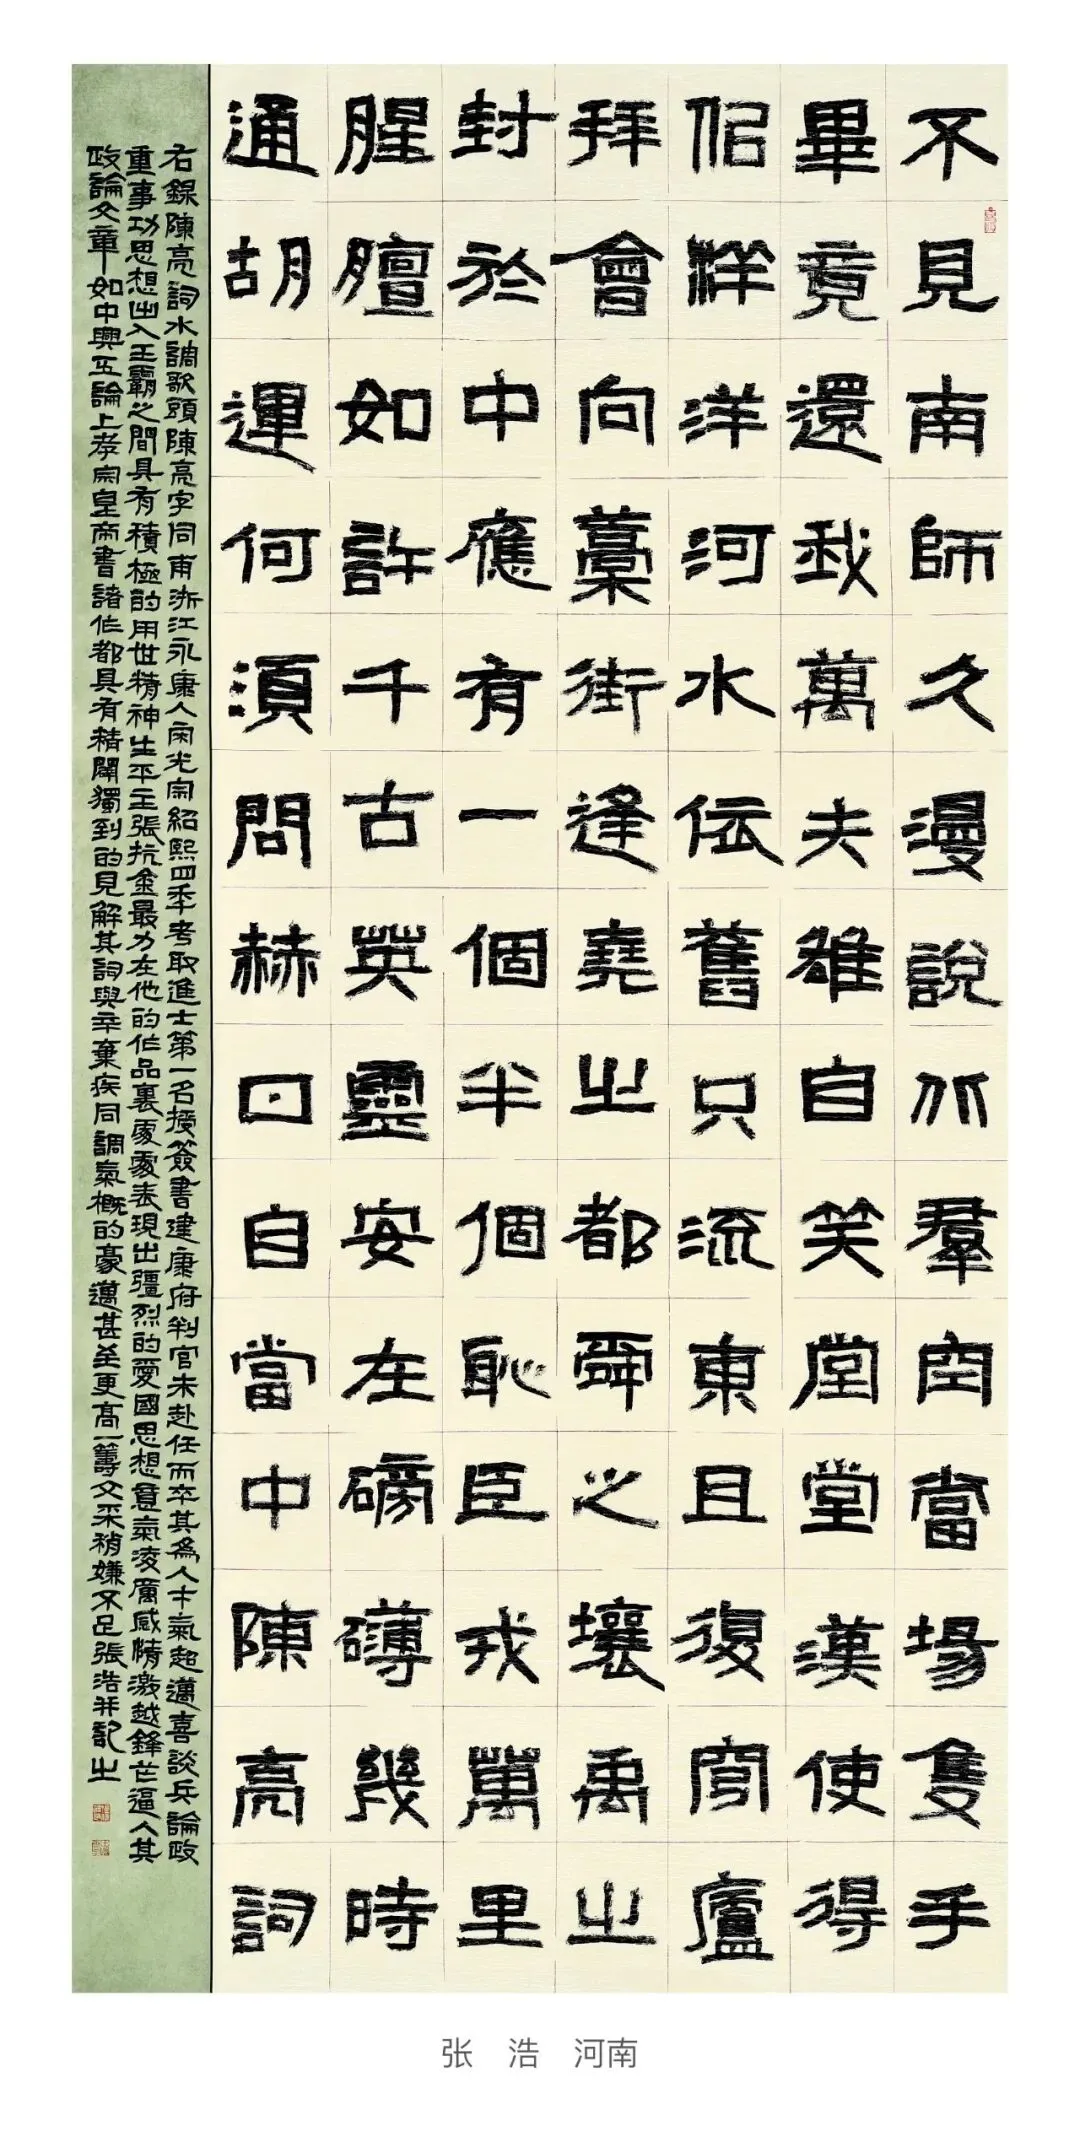 不見南師久漫說北羣空當場隻手
畢竟還我萬夫雄自笑堂堂漢使得
佀洋洋河水依舊只流東且復穹廬
拜會向藁街逢堯之都舜之壤禹之
封於中應有一個半個恥臣戎萬里
腥膻如許千古英靈安在磅礴幾時
通胡運何須問赫日自當中陳亮詞
右錄陳亮詞水調歌頭陳亮字同甫浙江永康人宋光宗紹熙四年考取進士第一名授簽書建康府判官未赴任而卒其為人才氣超邁喜談兵論政
重事功思想出入王霸之間具有積極的用世精神生平主張抗金最力在他的作品裏處處表現出彊烈的愛國思想意氣凌厲感情激越鋒芒逼人其
政論文章如中興五論上孝宗皇帝書諸作都具有精闢獨到的見解其詞與辛棄疾同調氣概的豪邁甚至更高一籌文采稍嫌不足張浩并記之
张 浩 河南